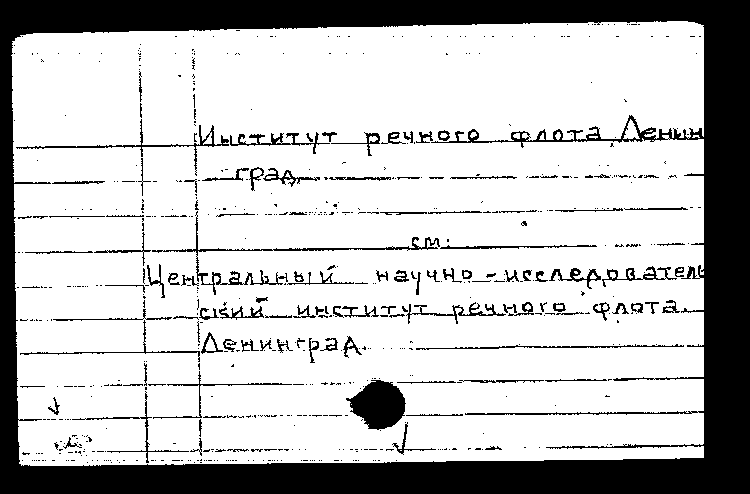 Институт речного флота, Ленин
град.
см:
Центральный научно-исследователь
ский институт речного флота.
Ленинград.